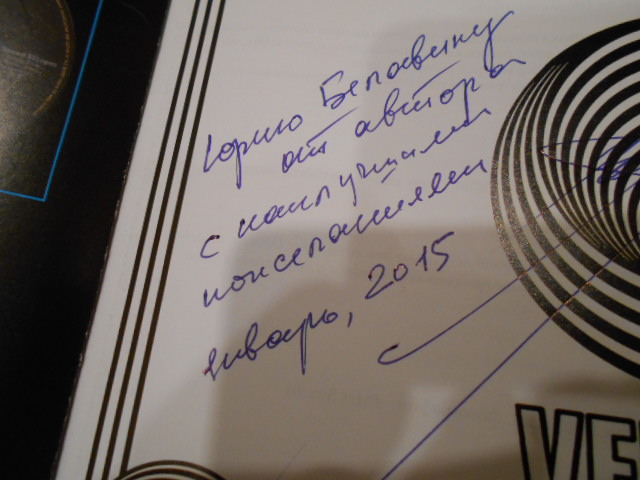 Юрию Белавину
от автора
с наилучшими
пожеланиями
январь, 2015
VE